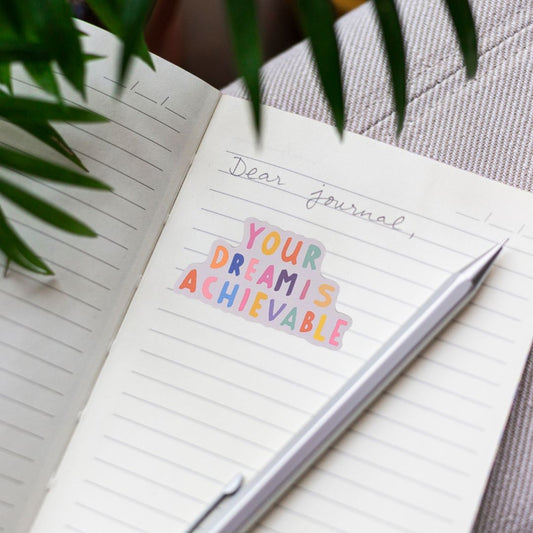 Dear journal,
YOUR
DREAM IS
ACHIEVABLE